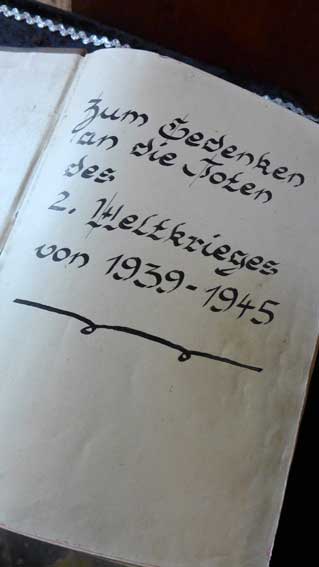 Zum Gedenken
an die Toten
des
2. Weltkrieges
von 1939-1945